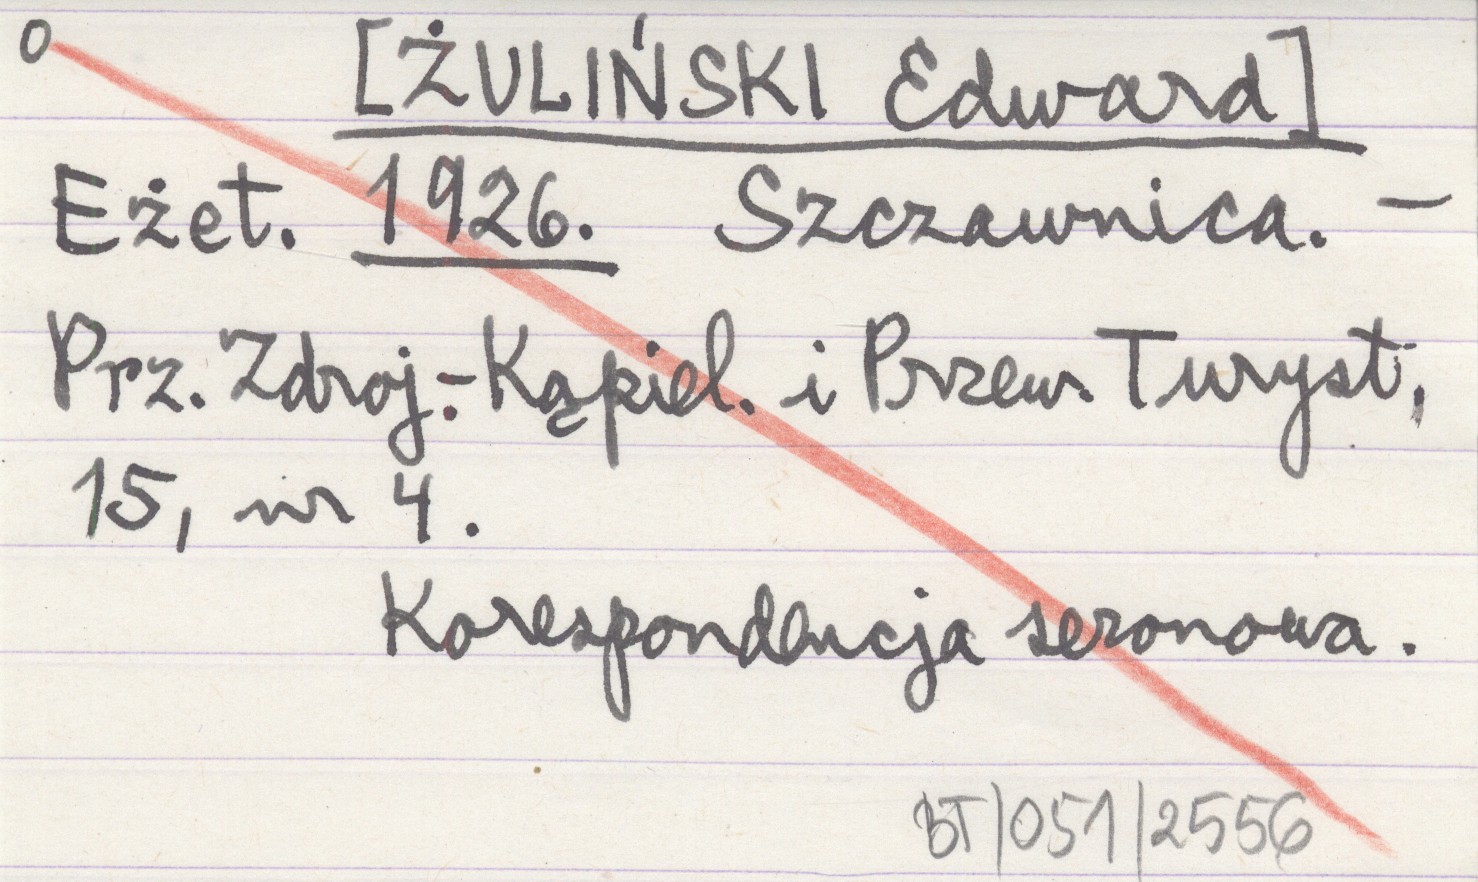 0 [ŻULIŃSKI Edward]
Eżet. 1926. Szczawnica. –
Prz. Zdroj.-Kąpiel. i Przew. Turyst.,
15, nr 4.
Korespondencja sezonowa.
BT/051/2556